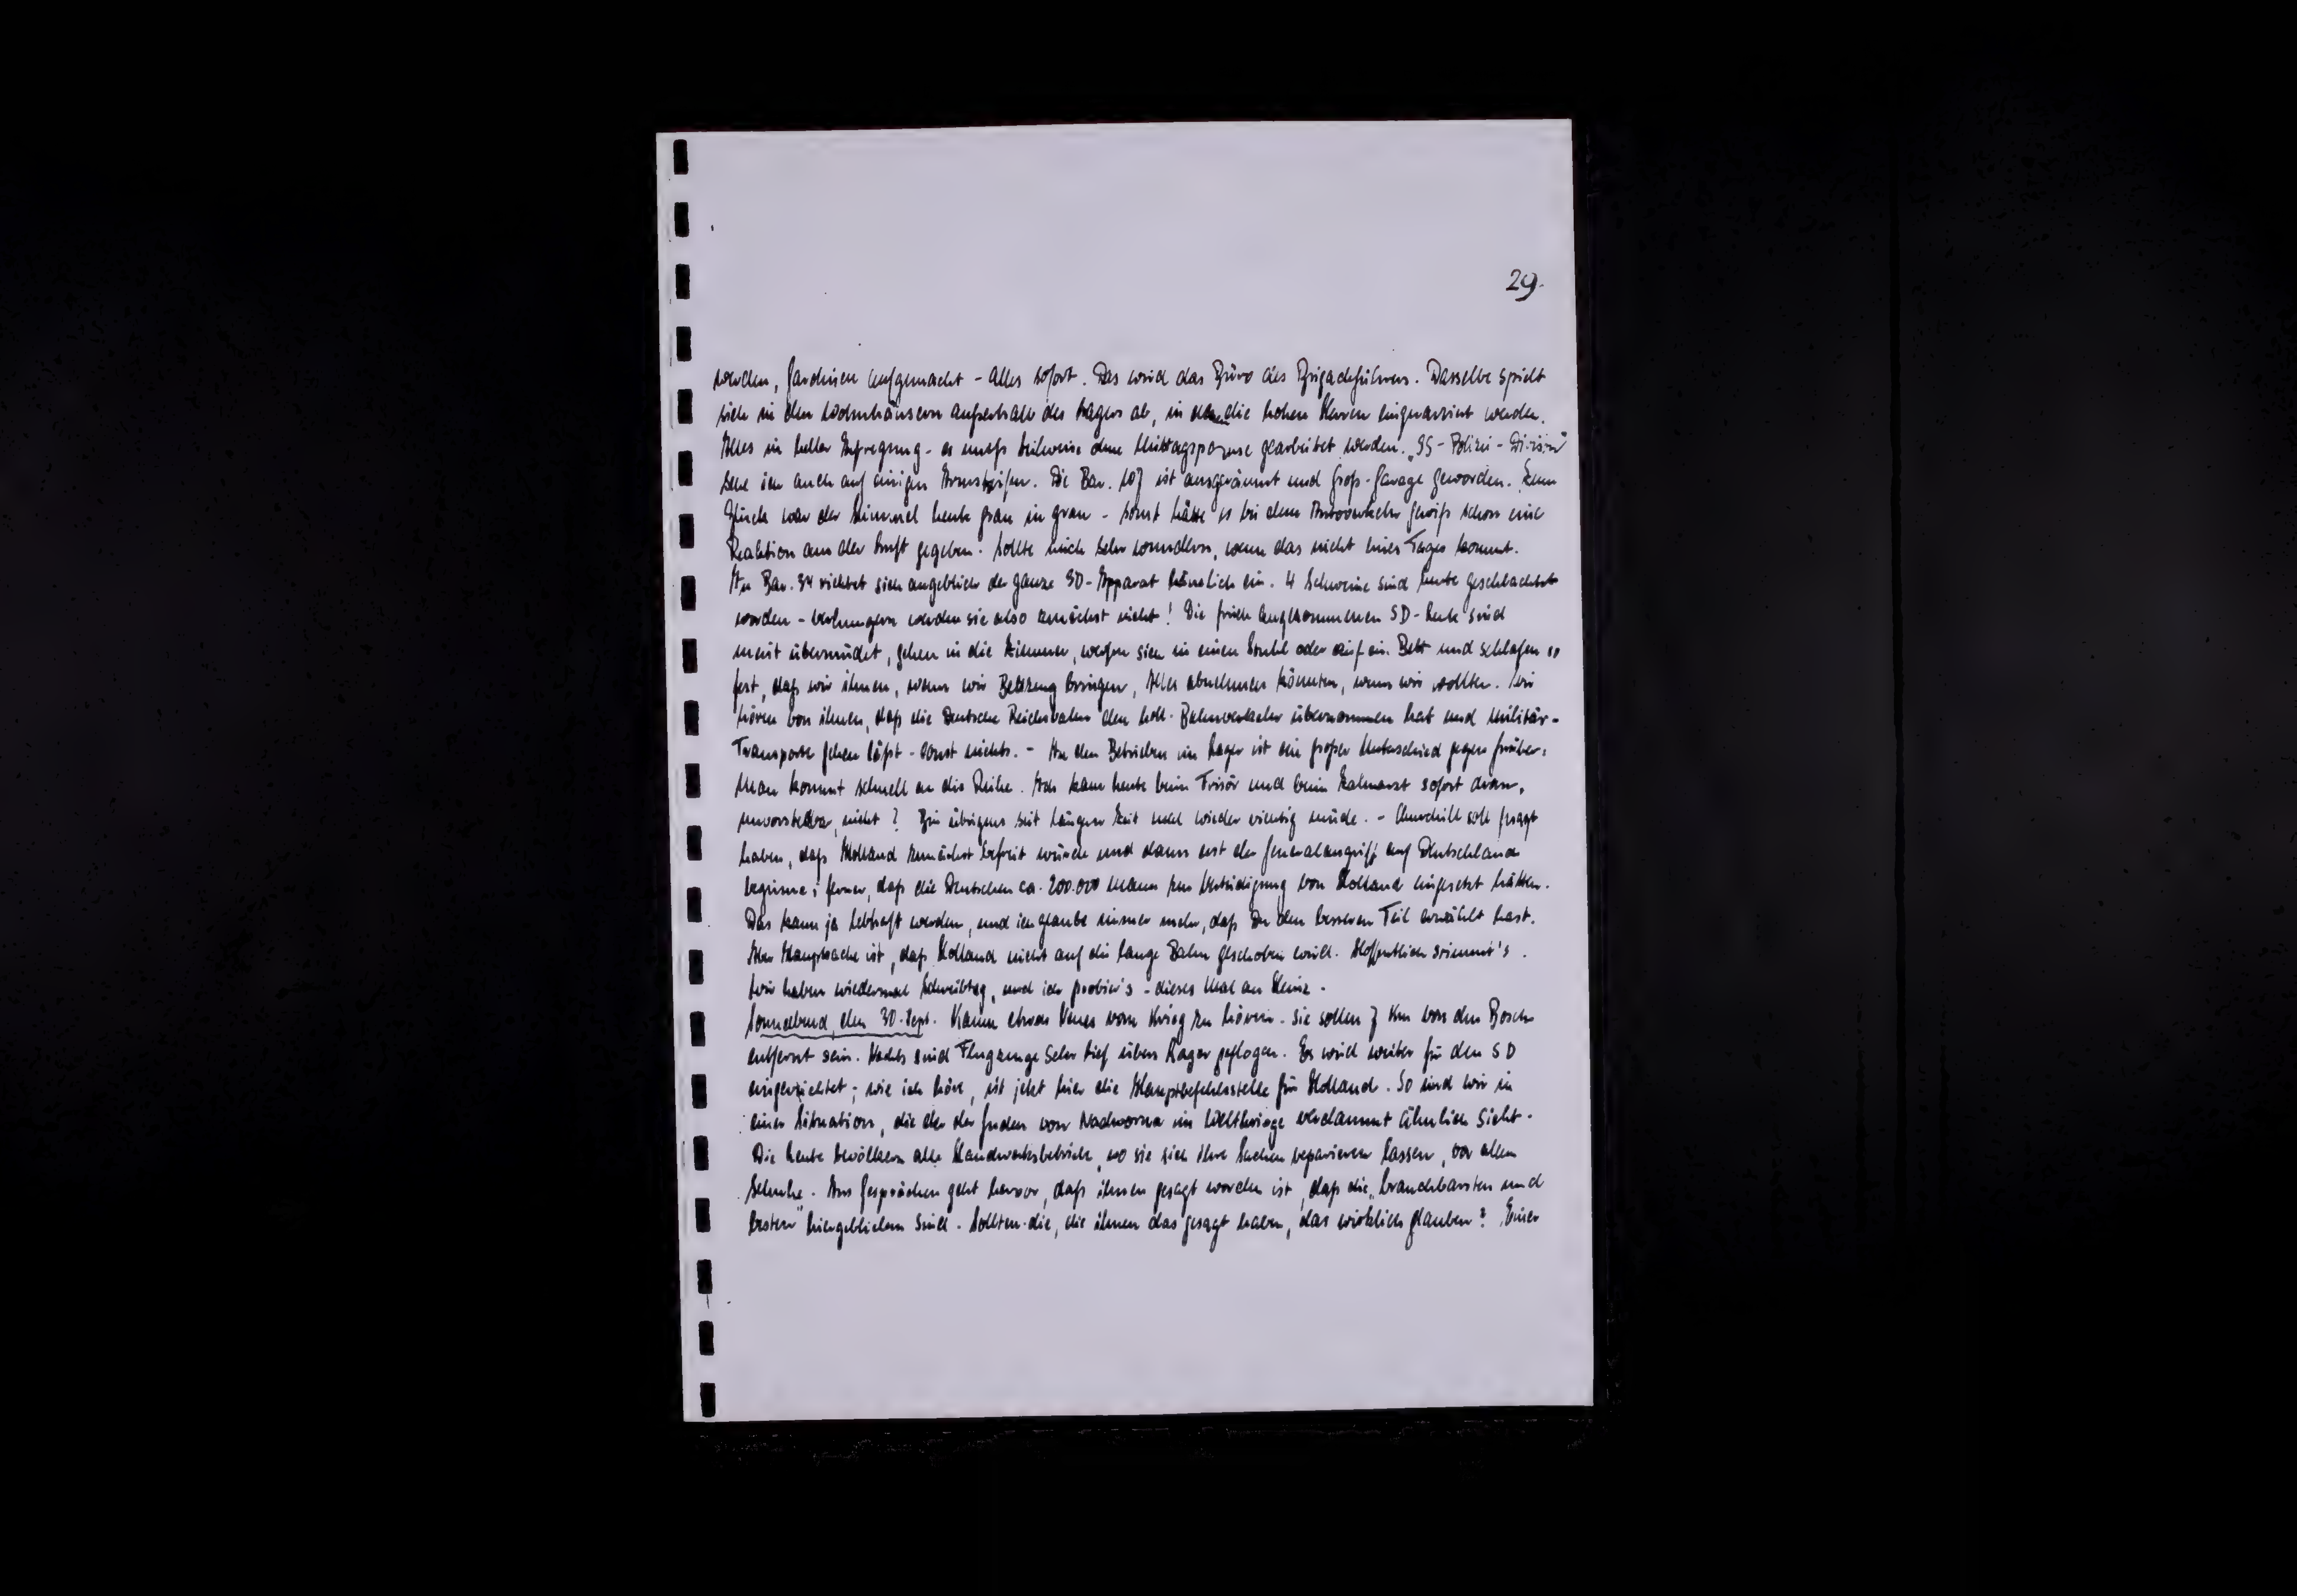 29.
werden, Gardinen aufgemacht - alles sofort. Das wird das Büro des Brigadeführers. Dasselbe spielt
sich in den Wohnhäusern außerhalb des Lagers ab, in denen die hohen Herren einquartiert werden.
Alles in heller Aufregung - es muß teilweise ohne Mittagspause gearbeitet werden. „SS-Polizei-Division"
sehe ich auch auf einigen Armstreifen. Die Bar. 107 ist ausgeräumt und Groß-Garage geworden. Zum
Glück war der Himmel heute grau in grau - sonst hätte es bei dem Autoverkehr gewiß schon eine
Reaktion aus der Luft gegeben. Sollte mich sehr wundern, wenn das nicht eines Tages kommt.
In Bar. 34 richtet sich angeblich der ganze SD-Apparat häuslich ein. 4 Schweine sind heute geschlachtet
worden - verhungern werden sie also zunächst nicht! Die frisch angekommenen SD-Leute sind
meist übermüdet, gehen in die Zimmer, werfen sich in einen Stuhl oder auf ein Bett und schlafen so
fest, daß wir ihnen, wenn wir Bettzeug bringen, Alles abnehmen könnten, wenn wir wollten. Wir
hören von ihnen, daß die Deutsche Reichsbahn den holl. Bahnverkehr übernommen hat und Militär-
Transporte gehen läßt - sonst nichts. - In den Betrieben im Lager ist ein großer Unterschied gegen früher:
Man kommt schnell an die Reihe. Ich kam heute beim Frisör und beim Zahnarzt sofort dran,
unvorstellbar, nicht? Bin übrigens seit langer Zeit mal wieder richtig müde. - Churchill soll gesagt
haben, daß Holland zunächst befreit würde und dann erst der Generalangriff auf Deutschland
beginne; ferner, daß die Deutschen ca. 200.000 Mann zur Verteidigung von Holland eingesetzt hätten.
Das kann ja lebhaft werden, und ich glaube immer mehr, daß Du den besseren Teil erwählt hast.
Aber Hauptsache ist, daß Holland nicht auf die lange Bahn geschoben wird. Hoffentlich stimmt's.
Wir haben wiedermal Schreibtag, und ich probier's - dieses Mal an Heinz.
Sonnabend, den 30. Sept. Kaum etwas Neues vom Krieg zu hören. Sie sollen 7 Km von den Bosch
entfernt sein. Nachts sind Flugzeuge sehr tief übers Lager geflogen. Es wird weiter für den SD
eingerichtet; wie ich höre, ist jetzt hier die Hauptbefehlsstelle für Holland. So sind wir in
einer Situation, die der der Juden von Nadworna im Weltkriege verdammt ähnlich sieht.
Die Leute bevölkern alle Handwerksbetriebe, wo sie sich ihre Sachen reparieren lassen, vor allem
Schuhe. Aus Gesprächen geht hervor, daß ihnen gesagt worden ist, daß die „brauchbarsten und
besten" hiergeblieben sind. Sollten die, die ihnen das gesagt haben, das wirklich glauben? Einer